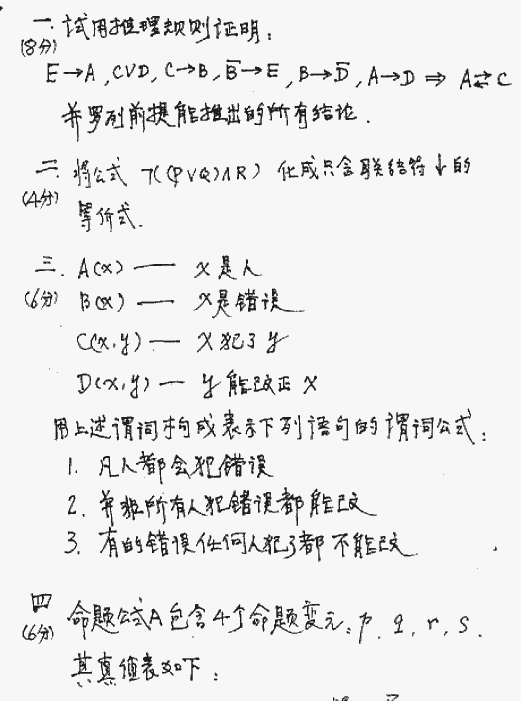 一. 试用推理规则证明：
(8分)
E→A , C∨D, C→B, B̅→E, B→D̅, A→D ⇒ A⇄C
并罗列前提能推出的所有结论.
二. 将公式 ㄱ((P∨Q)∧R) 化成只含联结符↓的
(4分)
等价式.
三. A(x) — x是人
(6分) B(x) — x是错误
C(x,y) — x犯了y
D(x,y) — y能改正x
用上述谓词构成表示下列语句的谓词公式：
1. 凡人都会犯错误
2. 并非所有人犯错误都能改
3. 有的错误任何人犯了都不能改.
四 命题公式A包含4个命题变元: p, q, r, s.
(6分)
其真值表如下：